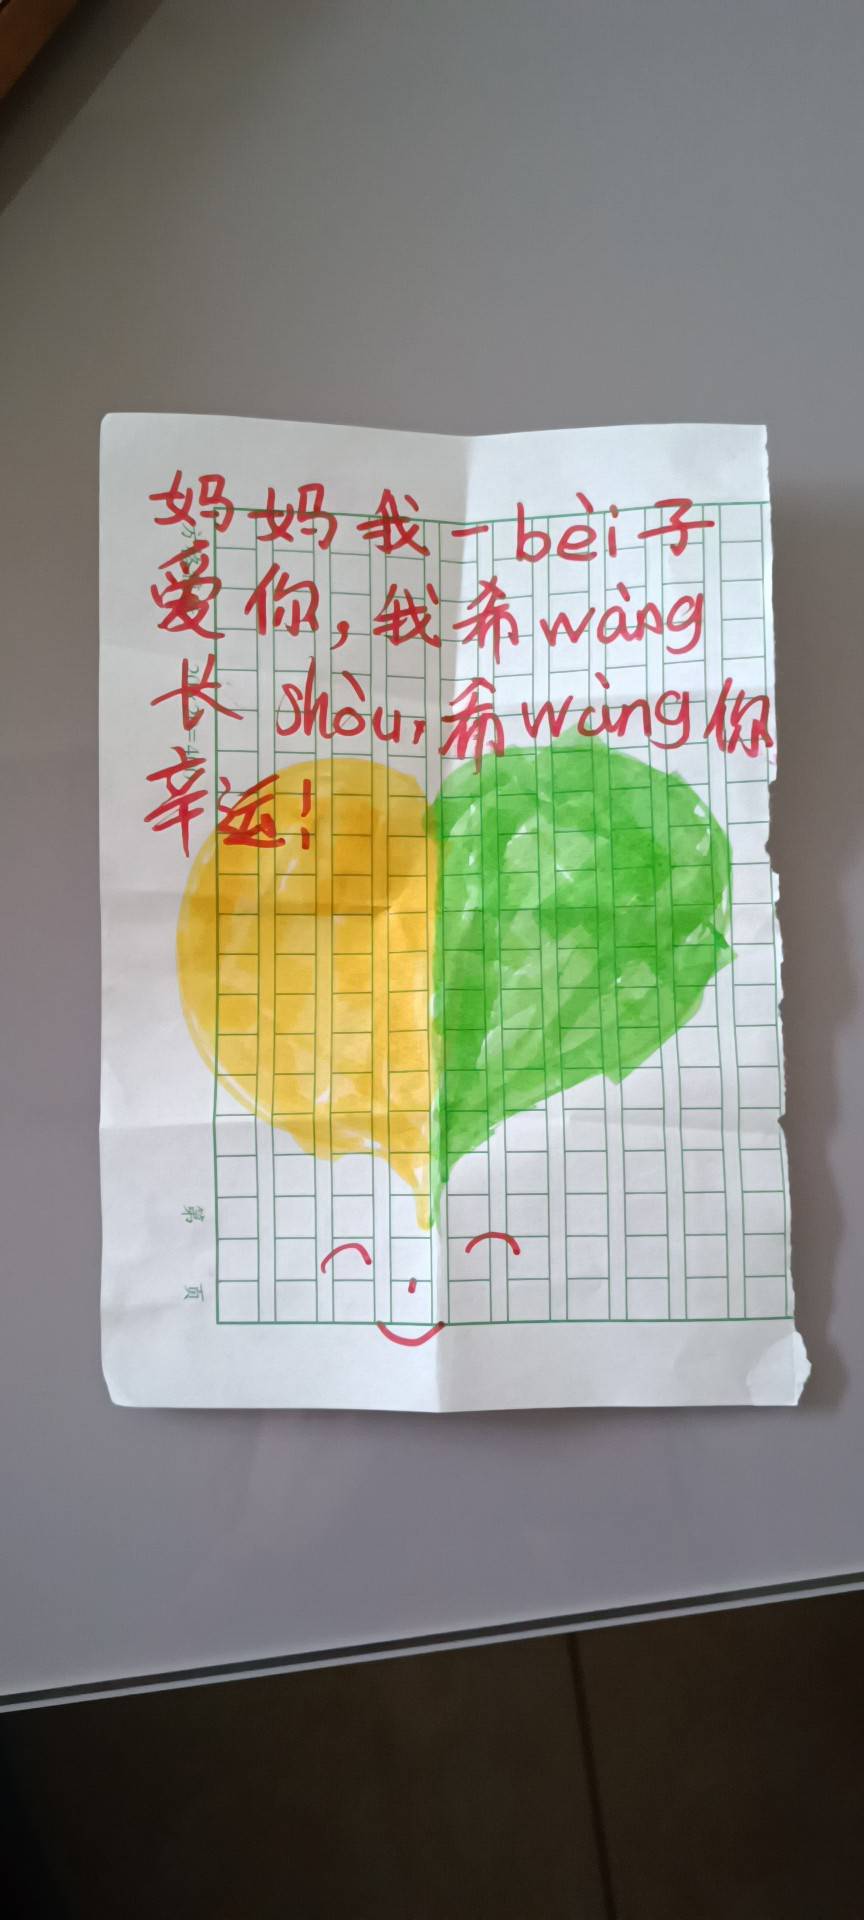 妈妈我一bèi子
爱你,我希wàng
长shòu,希wàng你
辛运!
第 页